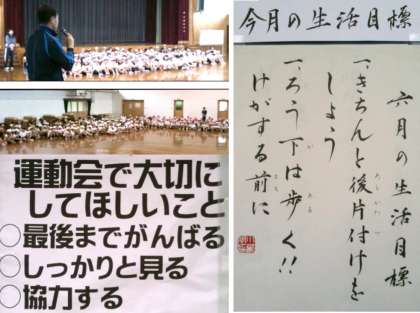 運動会で大切に
してほしいこと
○最後までがんばる
○しっかりと見る
○協力する
今月の生活目標
六月の生活目標
一、きちんと後片付けを
しよう
一、ろう下は歩く!!
けがする前に